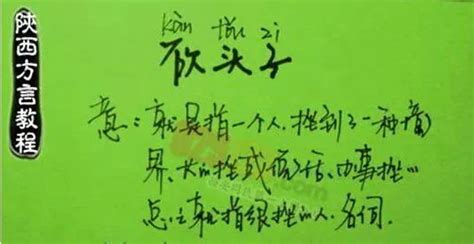 陕西方言教程
kǎn tóu zi
砍头子
意：就是指一个人.挫到了一种境
界、长的挫或说话、办事挫…
总之就指很挫的人.名词.